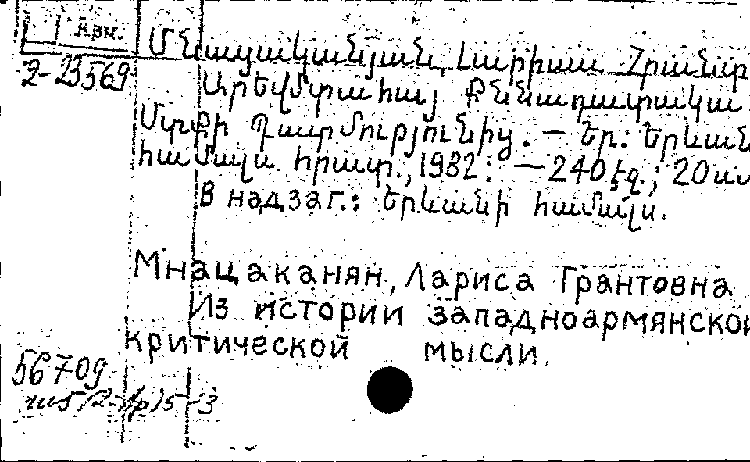 Арм.
2-23569
Մնացականյան, Լարիսա Հրանտի
Արևմտահայ քննադատական
Մտքի Պատմությունից. — Եր.: Երևան
համալս հրատ., 1982: — 240 էջ.; 20սմ
В надзаг.: Երևանի համալս.
Мнацаканян, Лариса Грантовна
Из истории западноармянской
критической мысли.
56709